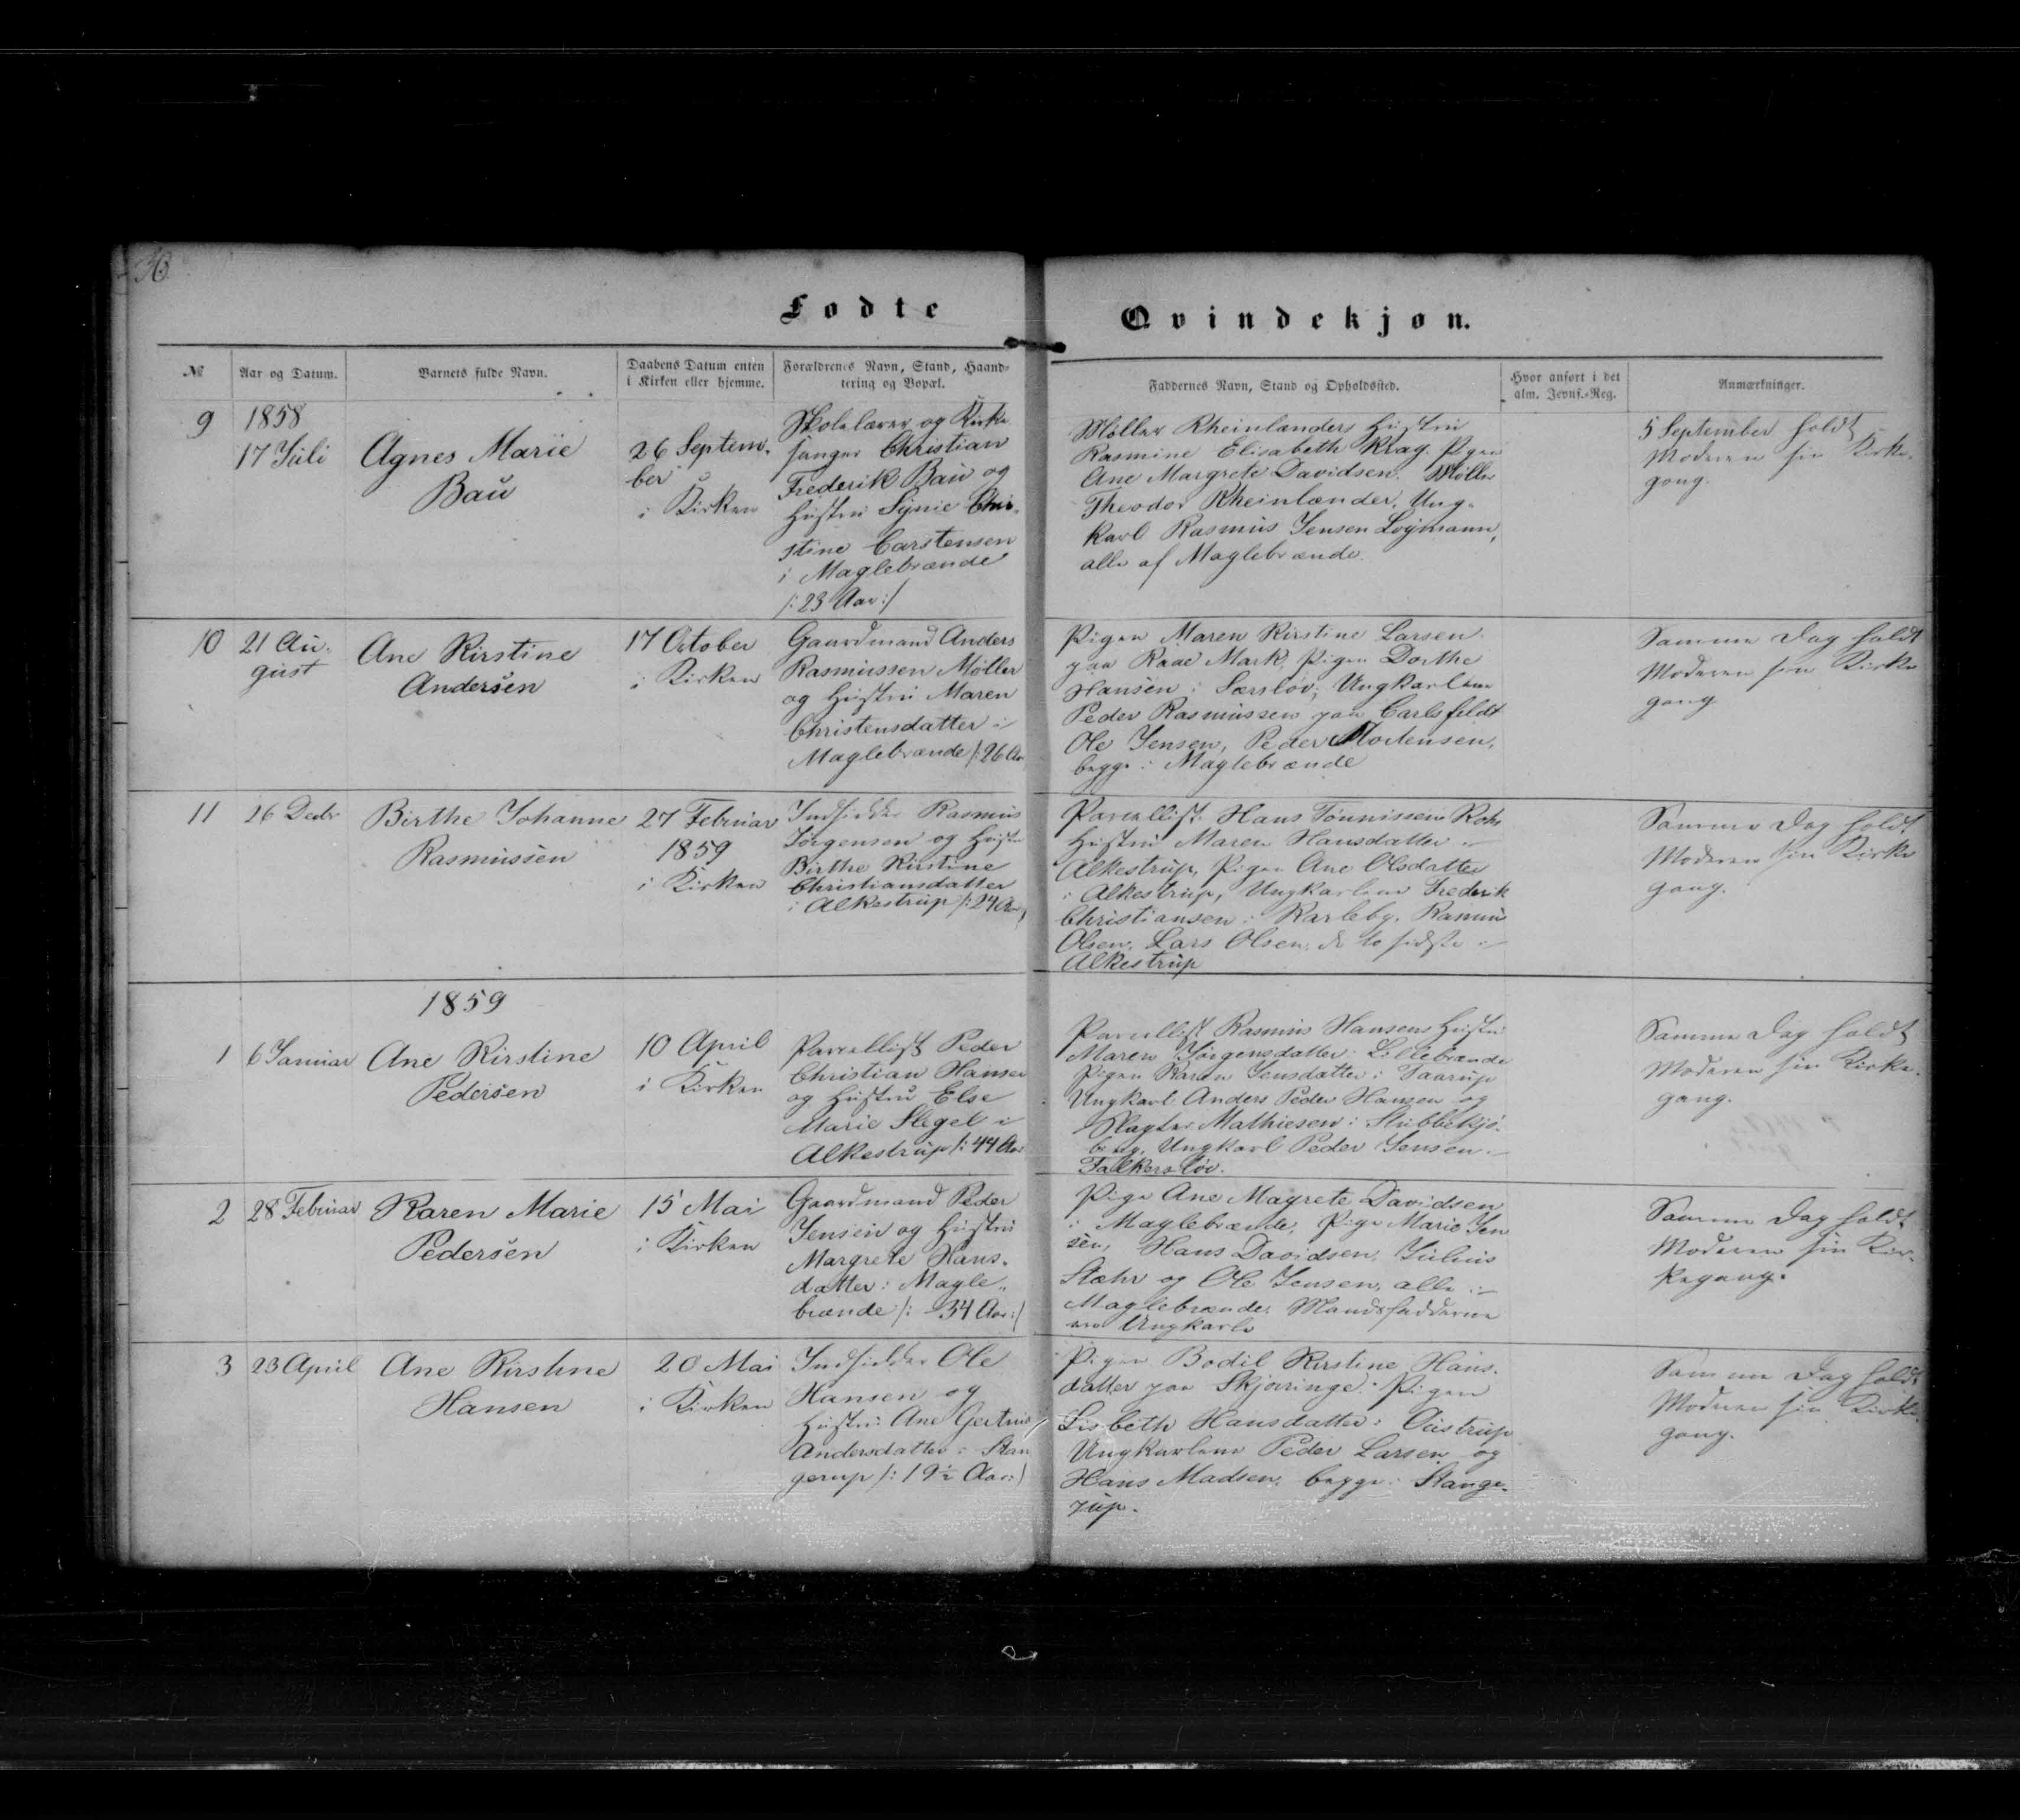 36
Fødte
Qvindekjøn.
№
Aar og Datum.
Barnets fulde Navn.
Daabens Datum enten
i Kirken eller hjemme.
Forældrenes Navn, Stand, Haand-
tering og Bopæl.
Faddernes Navn, Stand og Opholdssted.
Hvor anført i det
alm. Jevnf.-Reg.
Anmærkninger.
9
1858
17 Juli
Agnes Marie
Bau
26 Septem-
ber
i Kirken
Skolelærer og Kirke
sanger Christian
Frederik Bau og
Hustru Signie Chri-
stine Carstensen
i Maglebrænde
/: 23 Aar :/
Møller Rheinlænders Hustru
Rasmine Elisabeth Krag. Pigen
Ane Margrete Davidsen. Møller
Theodor Rheinlænder, Ung-
karl Rasmus Jensen Lojmann,
alle af Maglebrænde.
5 September holdt
Moderen sin Kirke-
gang.
10
21 Au-
gust
Ane Kirstine
Andersen
17 October
i Kirken
Gaardmand Anders
Rasmussen Møller
og Hustru Maren
Christensdatter i
Maglebrænde /: 26 Aar
Pigen Maren Kirstine Larsen
paa Raae Mark, Pigen Dorthe
Hansen i Særsløv, Ungkarlene
Peder Rasmussen paa Carlsfeldt
Ole Jensen, Peder Mortensen,
begge i Maglebrænde
Samme Dag holdt
Moderen sin Kirke
gang
11
26 Decbr
Birthe Johanne
Rasmussen
27 Februar
1859
i Kirken
Indsidder Rasmus
Jørgensen og Hustru
Birthe Kirstine
Christiansdatter
i Alkestrup /: 24 Aar
Parcellist Hans Tønnissen Rohs
Hustru Maren Hansdatter i
Alkestrup, Pigen Ane Olsdatter
i Alkestrup, Ungkarlene Frederik
Christiansen i Karleby, Rasmus
Olsen, Lars Olsen, de to sidste i
Alkestrup
Samme Dag holdt
Moderen sin Kirke
gang.
1859
1
6 Januar
Ane Kirstine
Pedersen
10 April
i Kirken
Parcellist Peder
Christian Hansen
og Hustru Else
Marie Slegel i
Alkestrup /: 44 Aar
Parcellist Rasmus Hansens Hustru
Maren Jørgensdatter i Lillebrænde
Pigen Karen Jensdatter i Taarup
Ungkarl Anders Peder Hansen og
Slagter Mathiesen i Stubbekjø-
bing, Ungkarl Peder Jensen i
Falkersløv.
Samme Dag holdt
Moderen sin Kirke-
gang.
2
28 Februar
Karen Marie
Pedersen
15 Mai
i Kirken
Gaardmand Peder
Jensen og Hustru
Margrete Hans-
datter i Magle-
brænde /: 34 Aar :/
Pige Ane Magrete Davidsen
i Maglebrænde, Pige Marie Jen
sen, Hans Davidsen, Julius
Stæhr og Ole Jensen, alle i
Maglebrænde. Mandsfadderne
ere Ungkarle
Samme Dag holdt
Moderen sin Kir-
kegang.
3
23 April
Ane Kirstine
Hansen
20 Mai
i Kirken
Indsidder Ole
Hansen og
Hustru Ane Gertrud
Andersdatter i Stan
gerup /: 19½ Aar :/
Pigen Bodil Kirstine Hans-
datter paa Skjøringe. Pigen
Lisbeth Hansdatter i Oustrup
Ungkarlene Peder Larsen og
Hans Madsen, begge i Stange-
rup.
Samme Dag holdt
Moderen sin Kirke
gang.